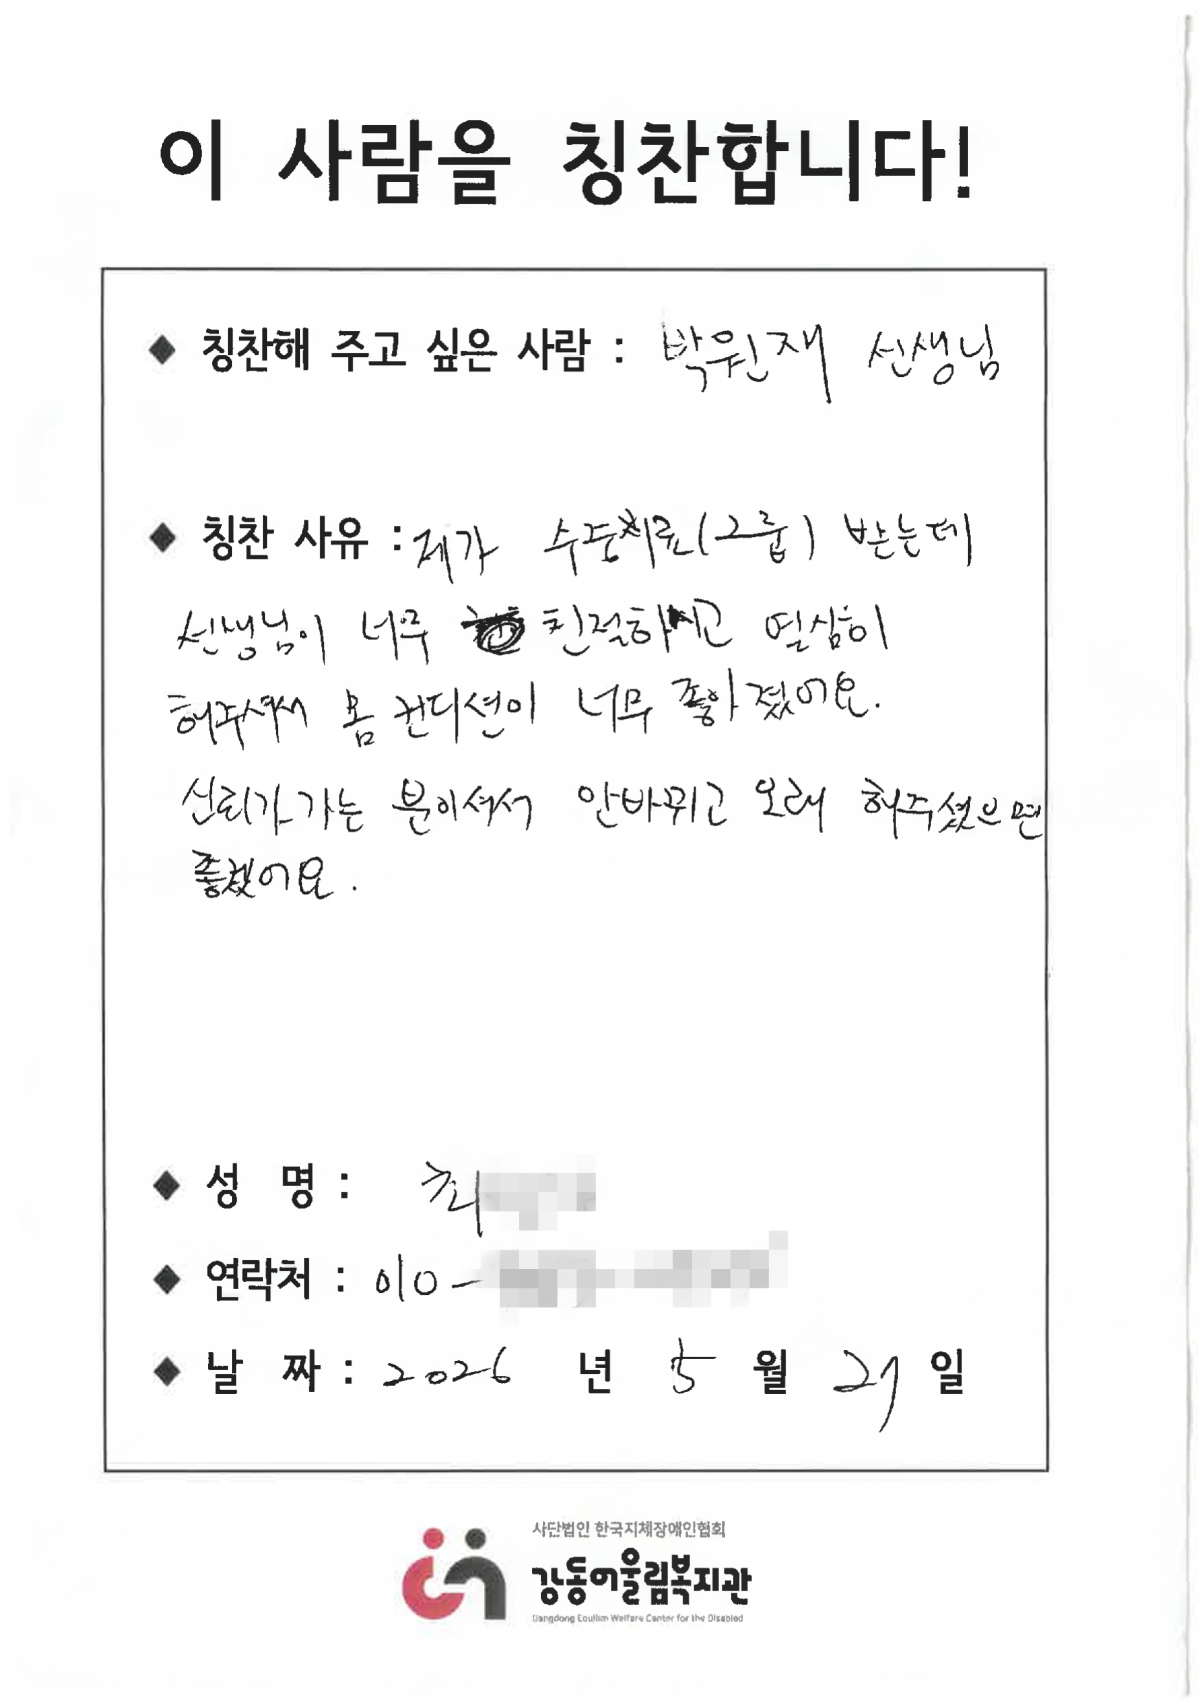 이 사람을 칭찬합니다!
◆ 칭찬해 주고 싶은 사람 : 박원재 선생님
◆ 칭찬 사유 : 제가 수중치료(그룹) 받는데
선생님이 너무 친절하시고 열심히
해주셔서 몸 컨디션이 너무 좋아졌어요.
신뢰가 가는 분이셔서 안바뀌고 오래 해주셨으면
좋겠어요.
◆ 성 명 : 최
◆ 연락처 : 010-
◆ 날 짜 : 2026 년 5 월 21 일
사단법인 한국지체장애인협회
강동어울림복지관
Gangdong Eoullim Welfare Center for the Disabled